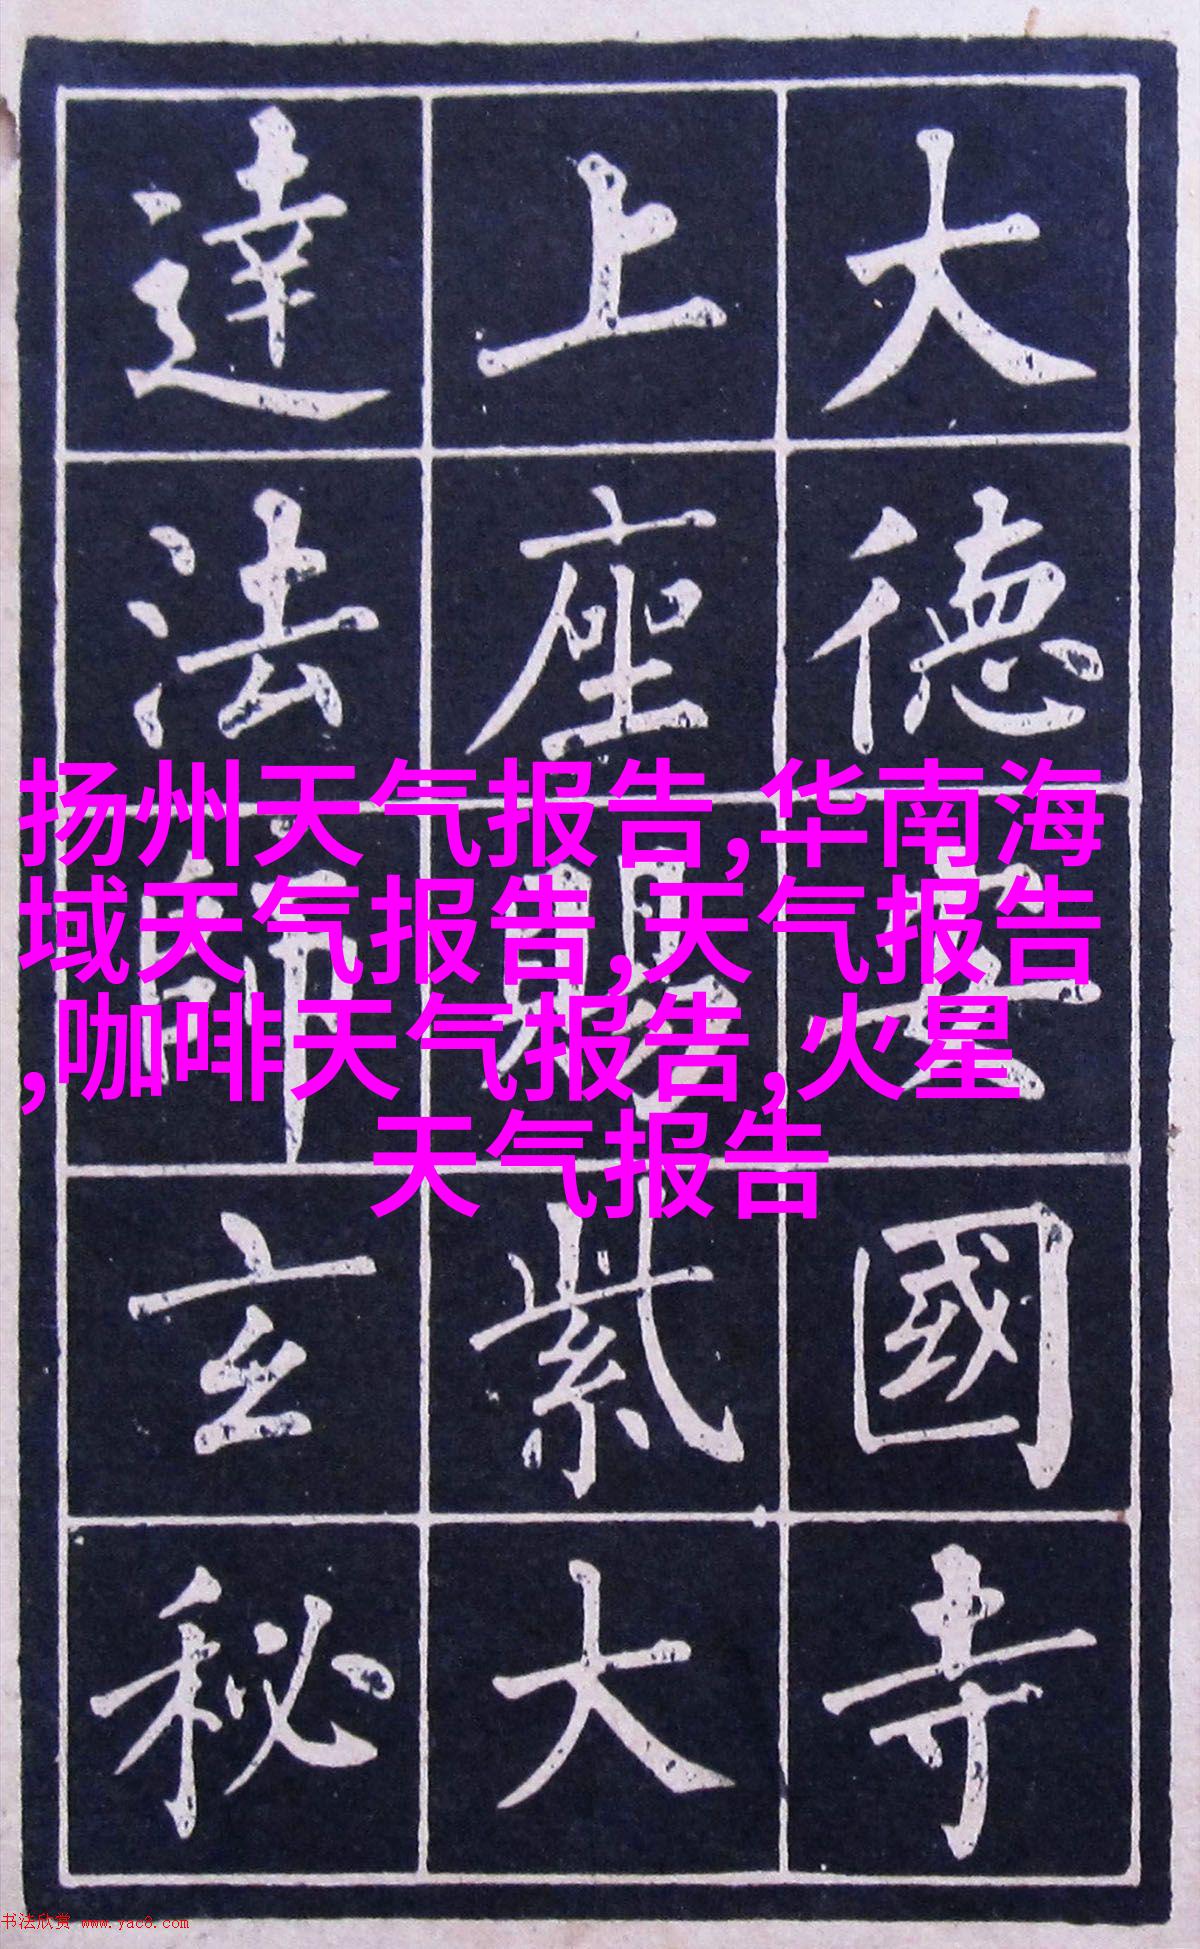 大德安國寺
上座賜紫大
達法師玄秘
扬州天气报告,华南海
域天气报告,天气报告
,咖啡天气报告,火星
天气报告
书法欣赏 www.yac8.com